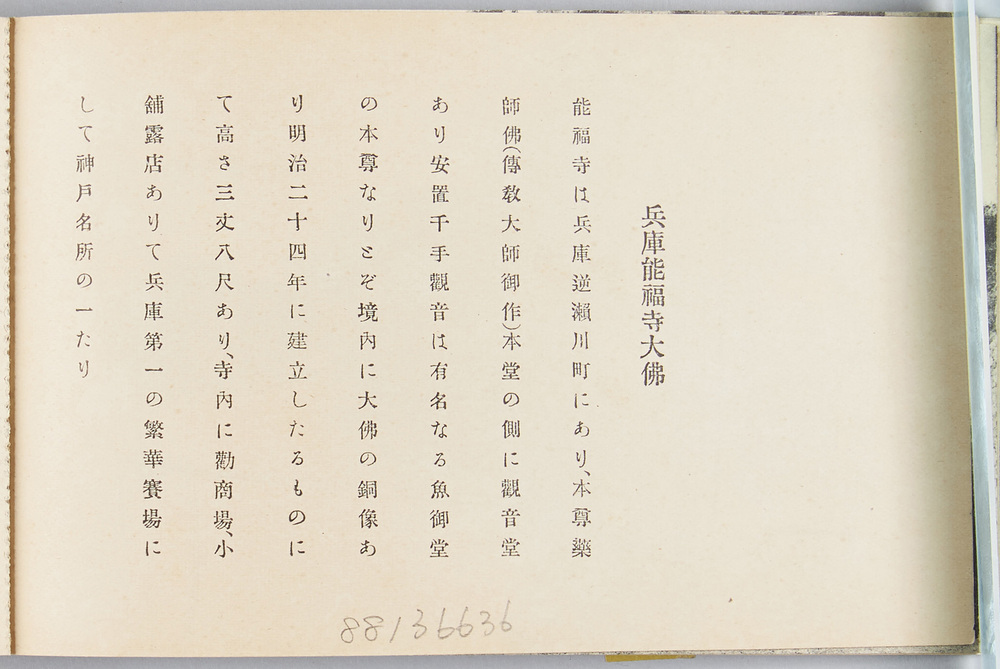 兵庫能福寺大佛
能福寺は兵庫逆瀨川町にあり、本尊藥
師佛(傳敎大師御作)本堂の側に觀音堂
あり安置千手觀音は有名なる魚御堂
の本尊なりとぞ境內に大佛の銅像あ
り明治二十四年に建立したるものに
て高さ三丈八尺あり、寺內に勸商場、小
舖露店ありて兵庫第一の繁華賽場に
して神戶名所の一たり
88136636